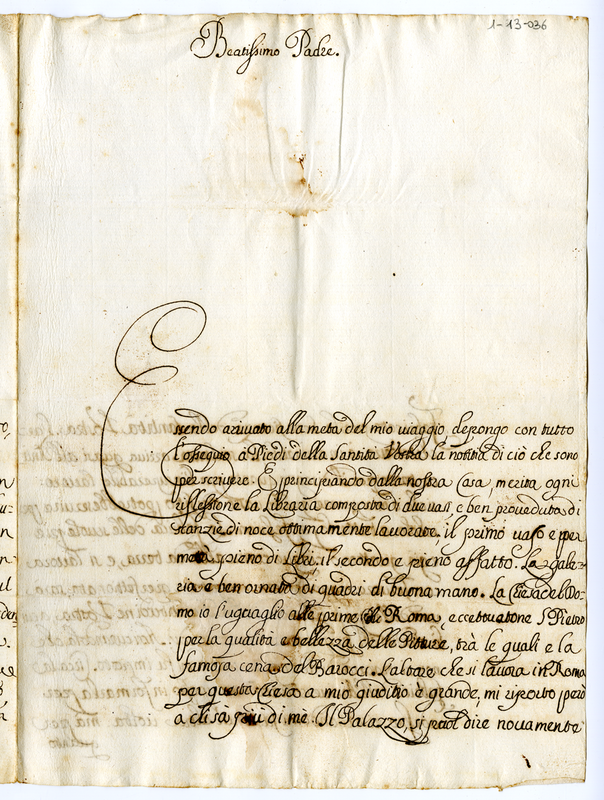 1-13-036
Beatissimo Padre.
Essendo arivato alla meta del mio viaggio depongo con tutto
l'ossequio a Piedi della Santità Vostra la notitia di ciò che sono
per scrivere. E principiando dalla nostra Casa, merita ogni
riflessione la Libraria composta di due vasi, e ben proveduta di
stanzie di noce ottimamente lavorate. il primo vaso e per
metà pieno di Libri. il secondo e pieno affatto. La gale-
ria e ben ornata di quadri di buona mano. La Chiesa del Do-
mo io l'uguaglio alle prime di Roma, eccettuatone S Pietro
per la qualità e bellezza delle Pitture, trà le quali e la
famosa cena del Barocci. L'altare che si lavora in Roma
per questa Chiesa a mio giuditio è grande, mi riporto però
a chi sà più di mè. Il Palazzo, si può dire novamente